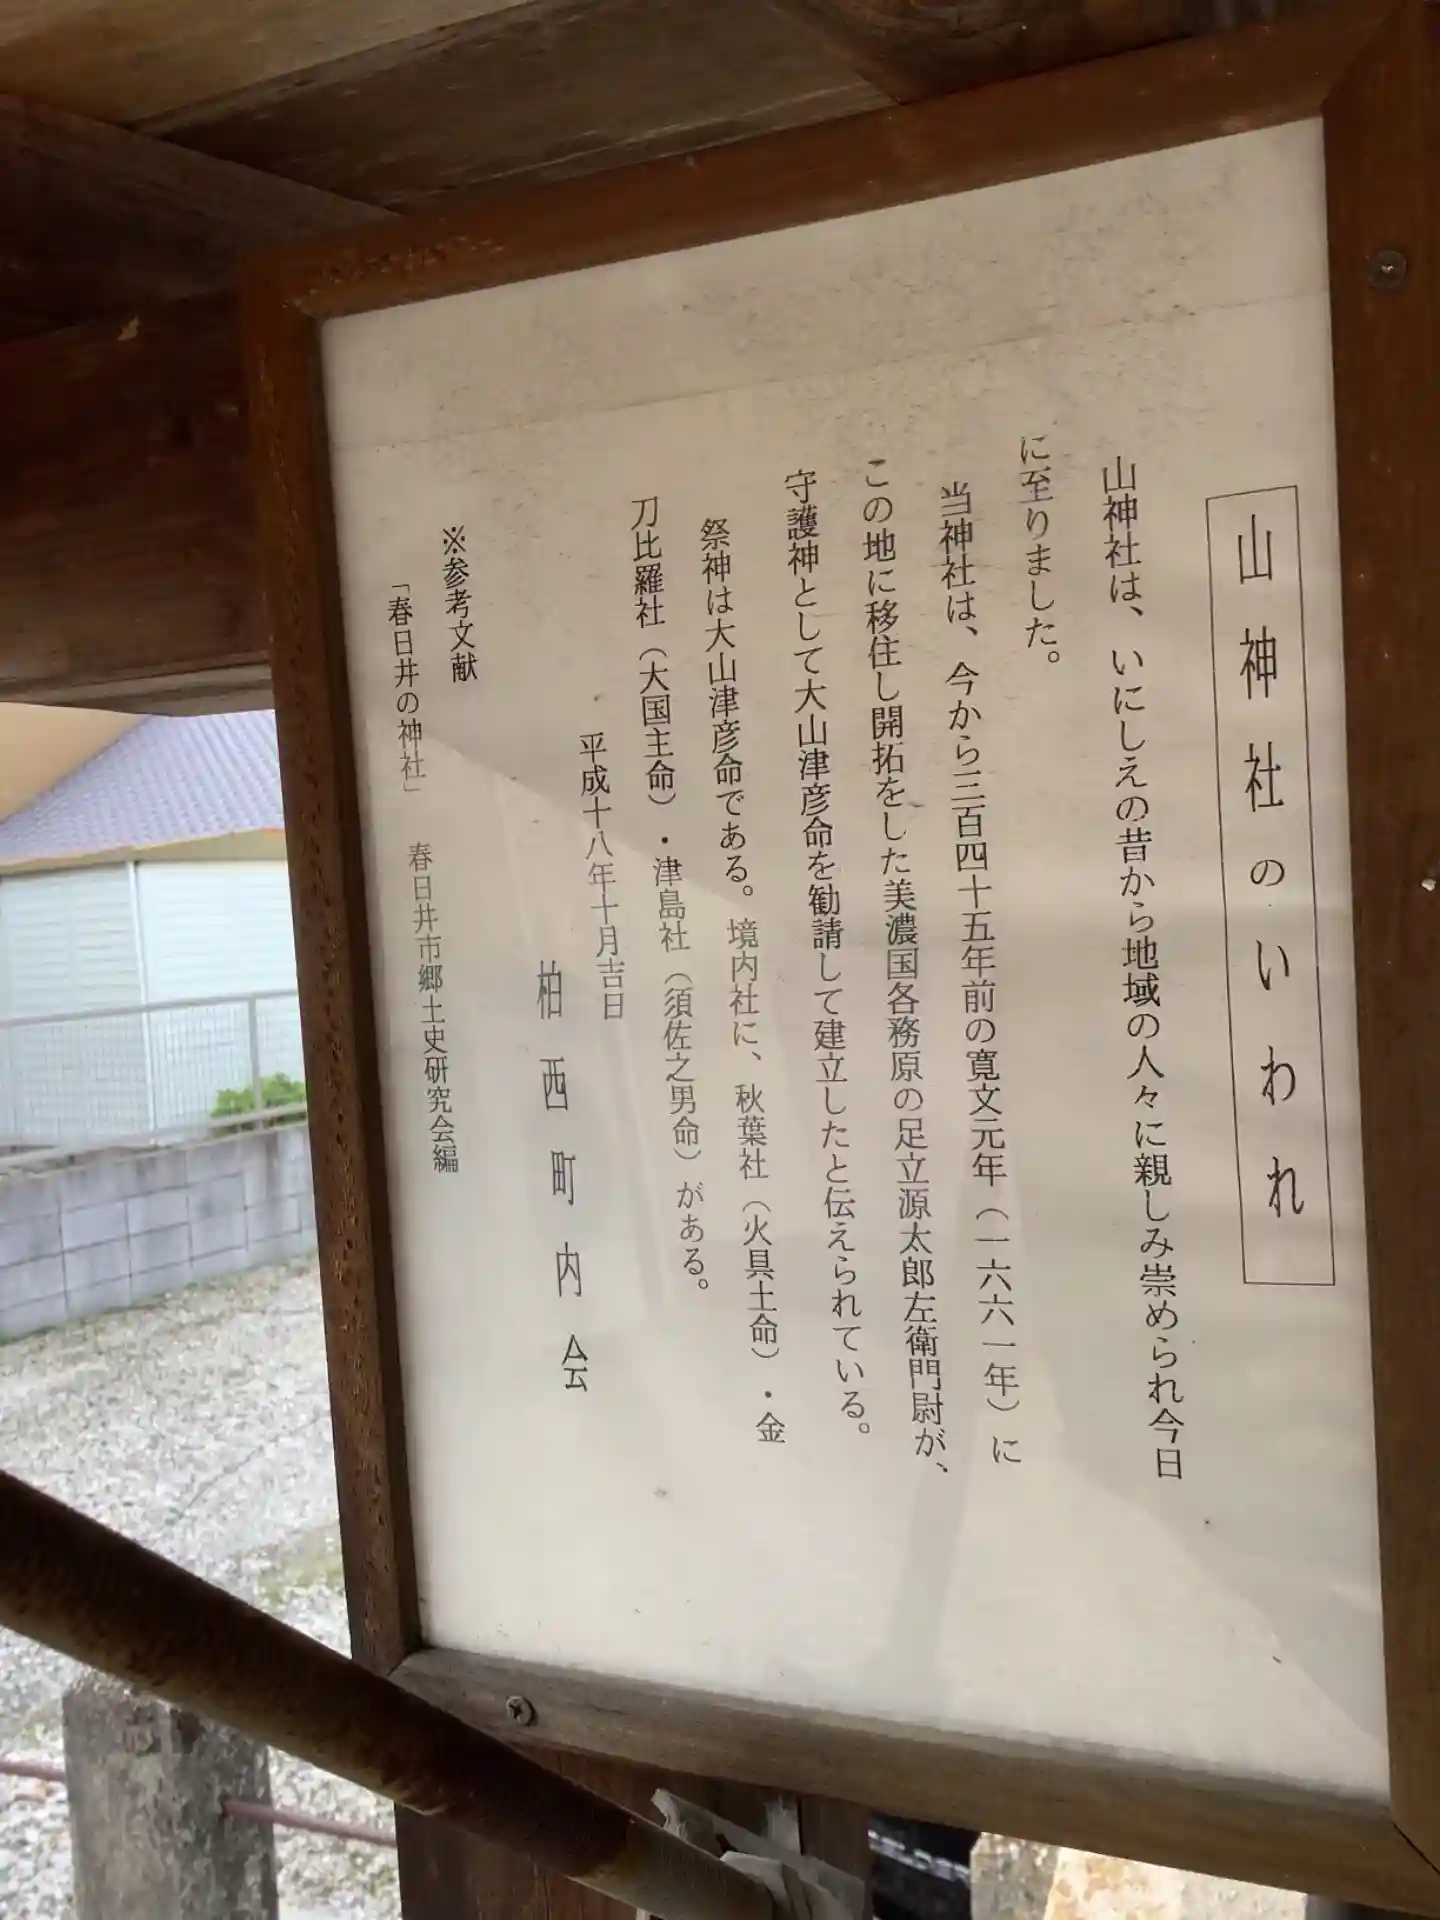 山神社のいわれ
山神社は、いにしえの昔から地域の人々に親しみ崇められ今日
に至りました。
当神社は、今から三百四十五年前の寛文元年（一六六一年）に
この地に移住し開拓をした美濃国各務原の足立源太郎左衛門尉が、
守護神として大山津彦命を勧請して建立したと伝えられている。
祭神は大山津彦命である。境内社に、秋葉社（火具土命）・金
刀比羅社（大国主命）・津島社（須佐之男命）がある。
平成十八年十月吉日
柏西町内会
※参考文献
「春日井の神社」 春日井市郷土史研究会編